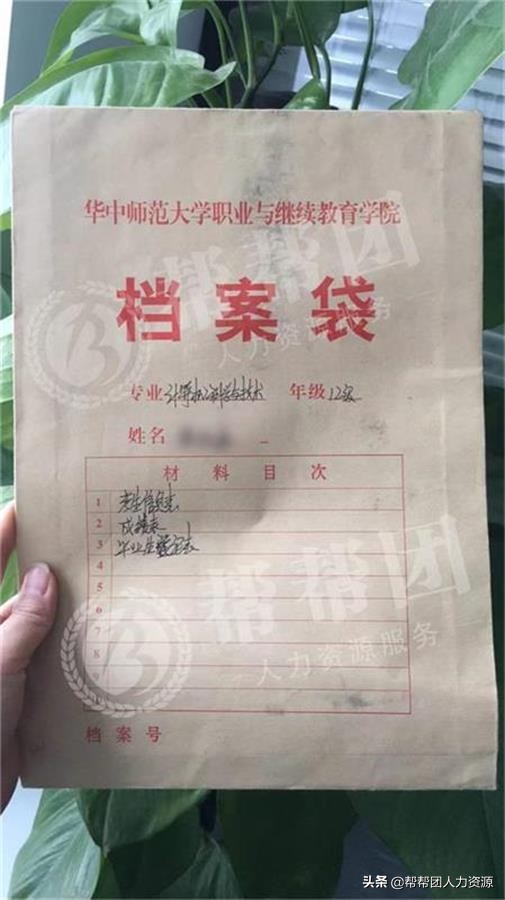 华中师范大学职业与继续教育学院
档案袋
专业 计算机科学与技术 年级 12级
姓名
材料目次
1 考生信息表
2 成绩表
3 毕业生登记表
4
5
6
7
8
9
档案号
帮帮团
人力资源服务
帮帮团
人力资源服务
头条 @帮帮团人力资源